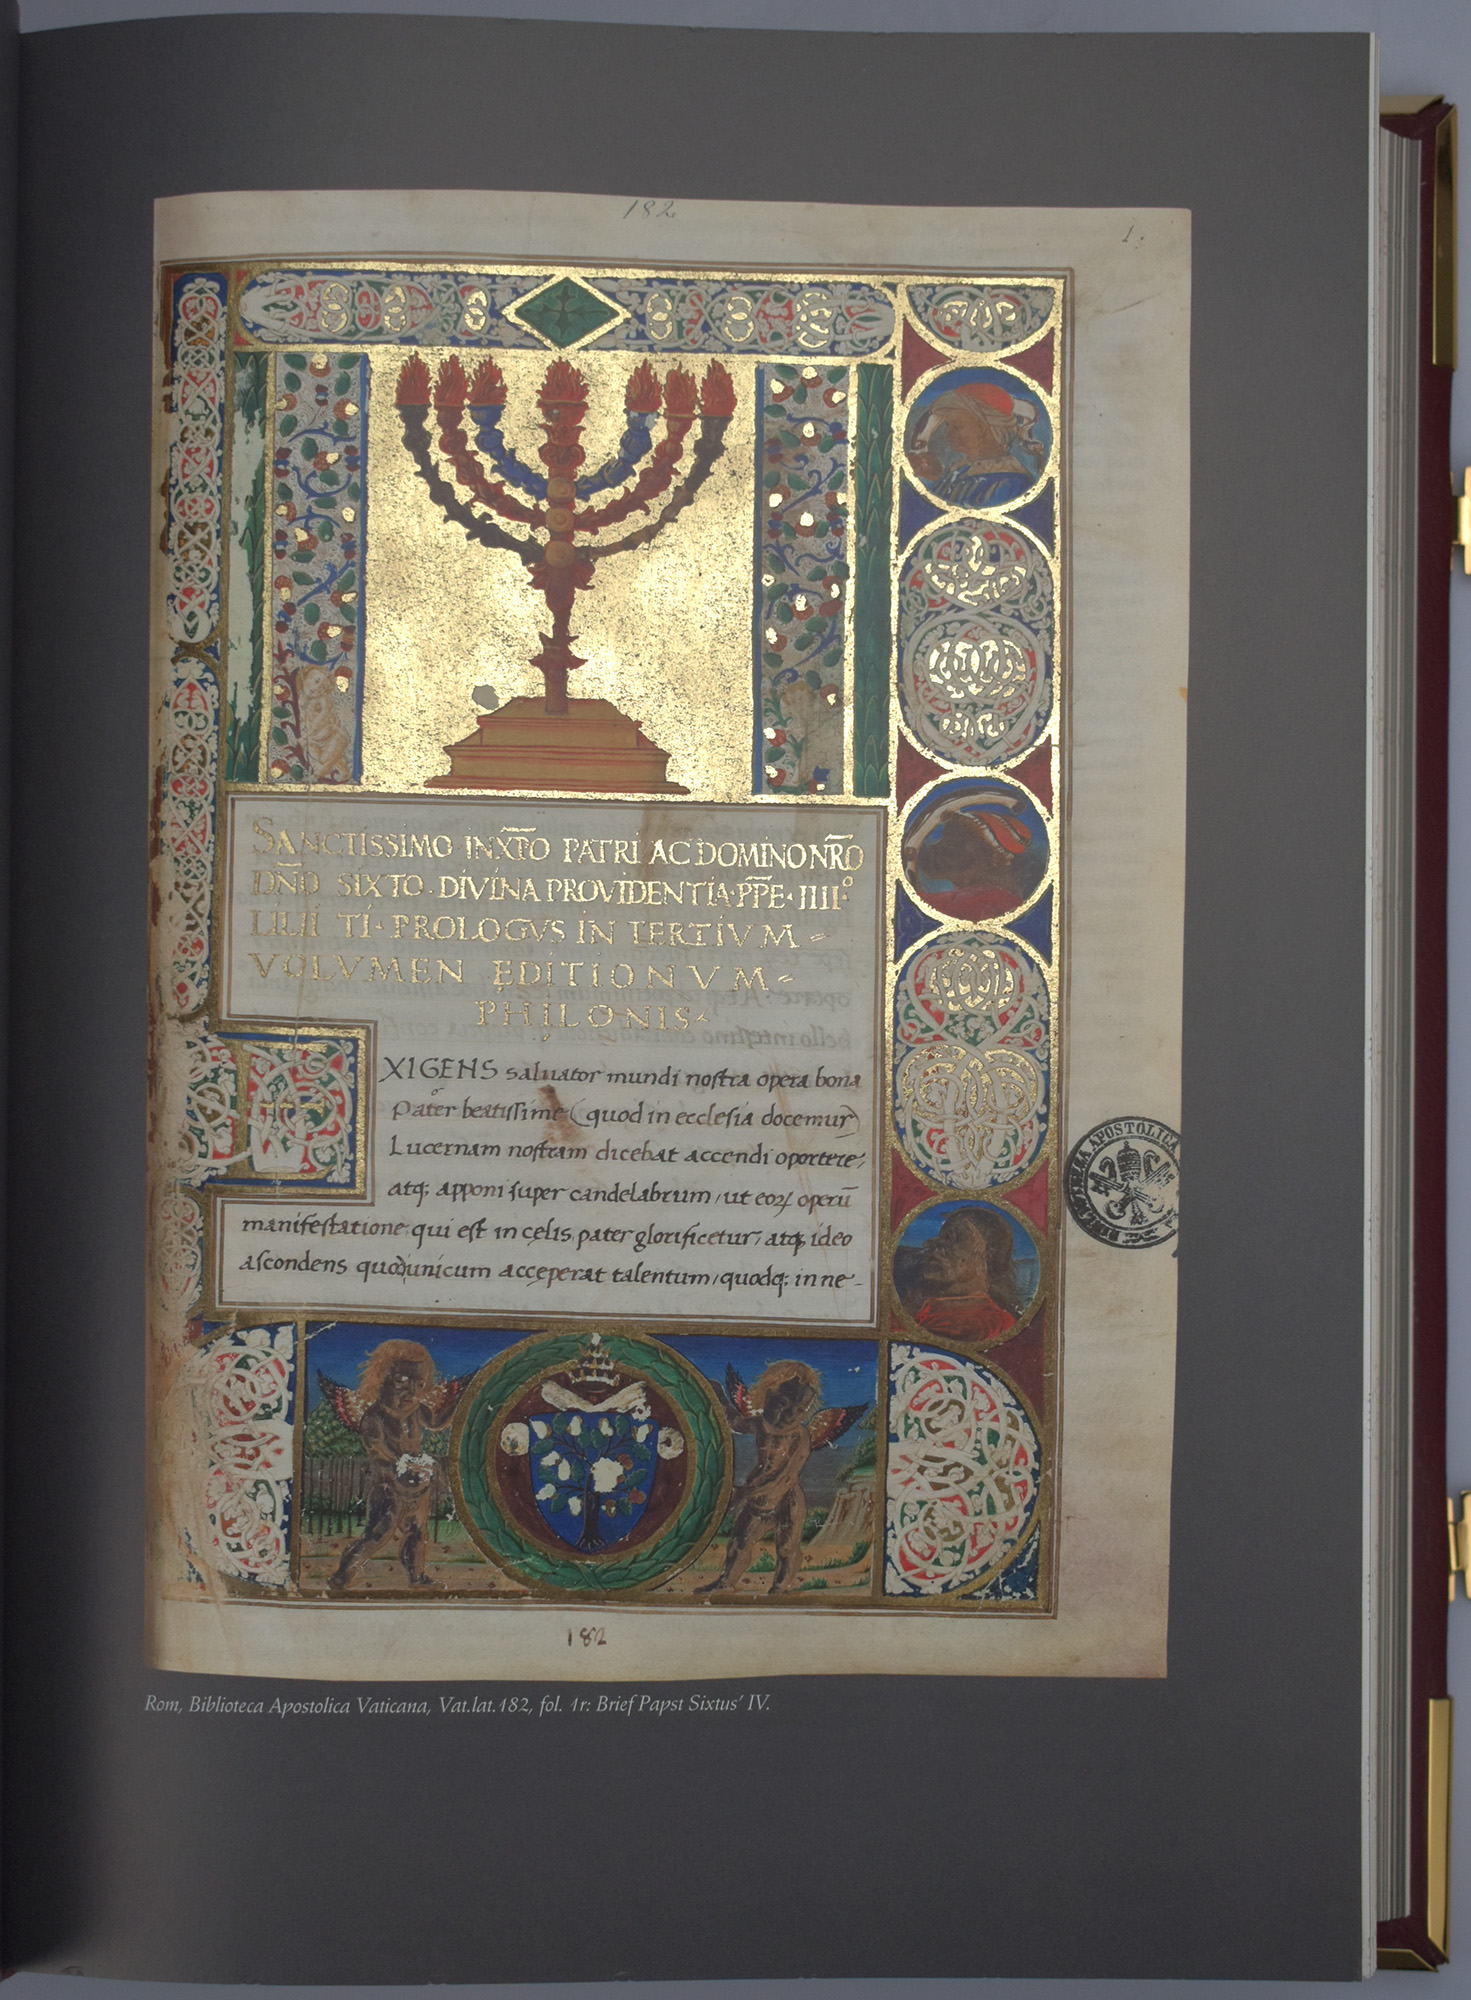 182
1.
SANCTISSIMO IN XP̄O PATRI AC DOMINO NR̄O
DN̄O SIXTO · DIVINA PROVIDENTIA · PP̄E · IIII°
LILII TI · PROLOGVS IN TERTIVM
VOLVMEN EDITIONVM
PHILONIS
EXIGENS saluator mundi nostra opera bona
Pater beatissime (quod in ecclesia docemur)
Lucernam nostram dicebat accendi oportere,
atq; apponi super candelabrum, ut eoꝝ operū
manifestatione, qui est in celis, pater glorificetur, atq; ideo
ascondens quod unicum acceperat talentum, quodq; in ne-
APOSTOLICA
182
Rom, Biblioteca Apostolica Vaticana, Vat.lat.182, fol. 1r: Brief Papst Sixtus' IV.